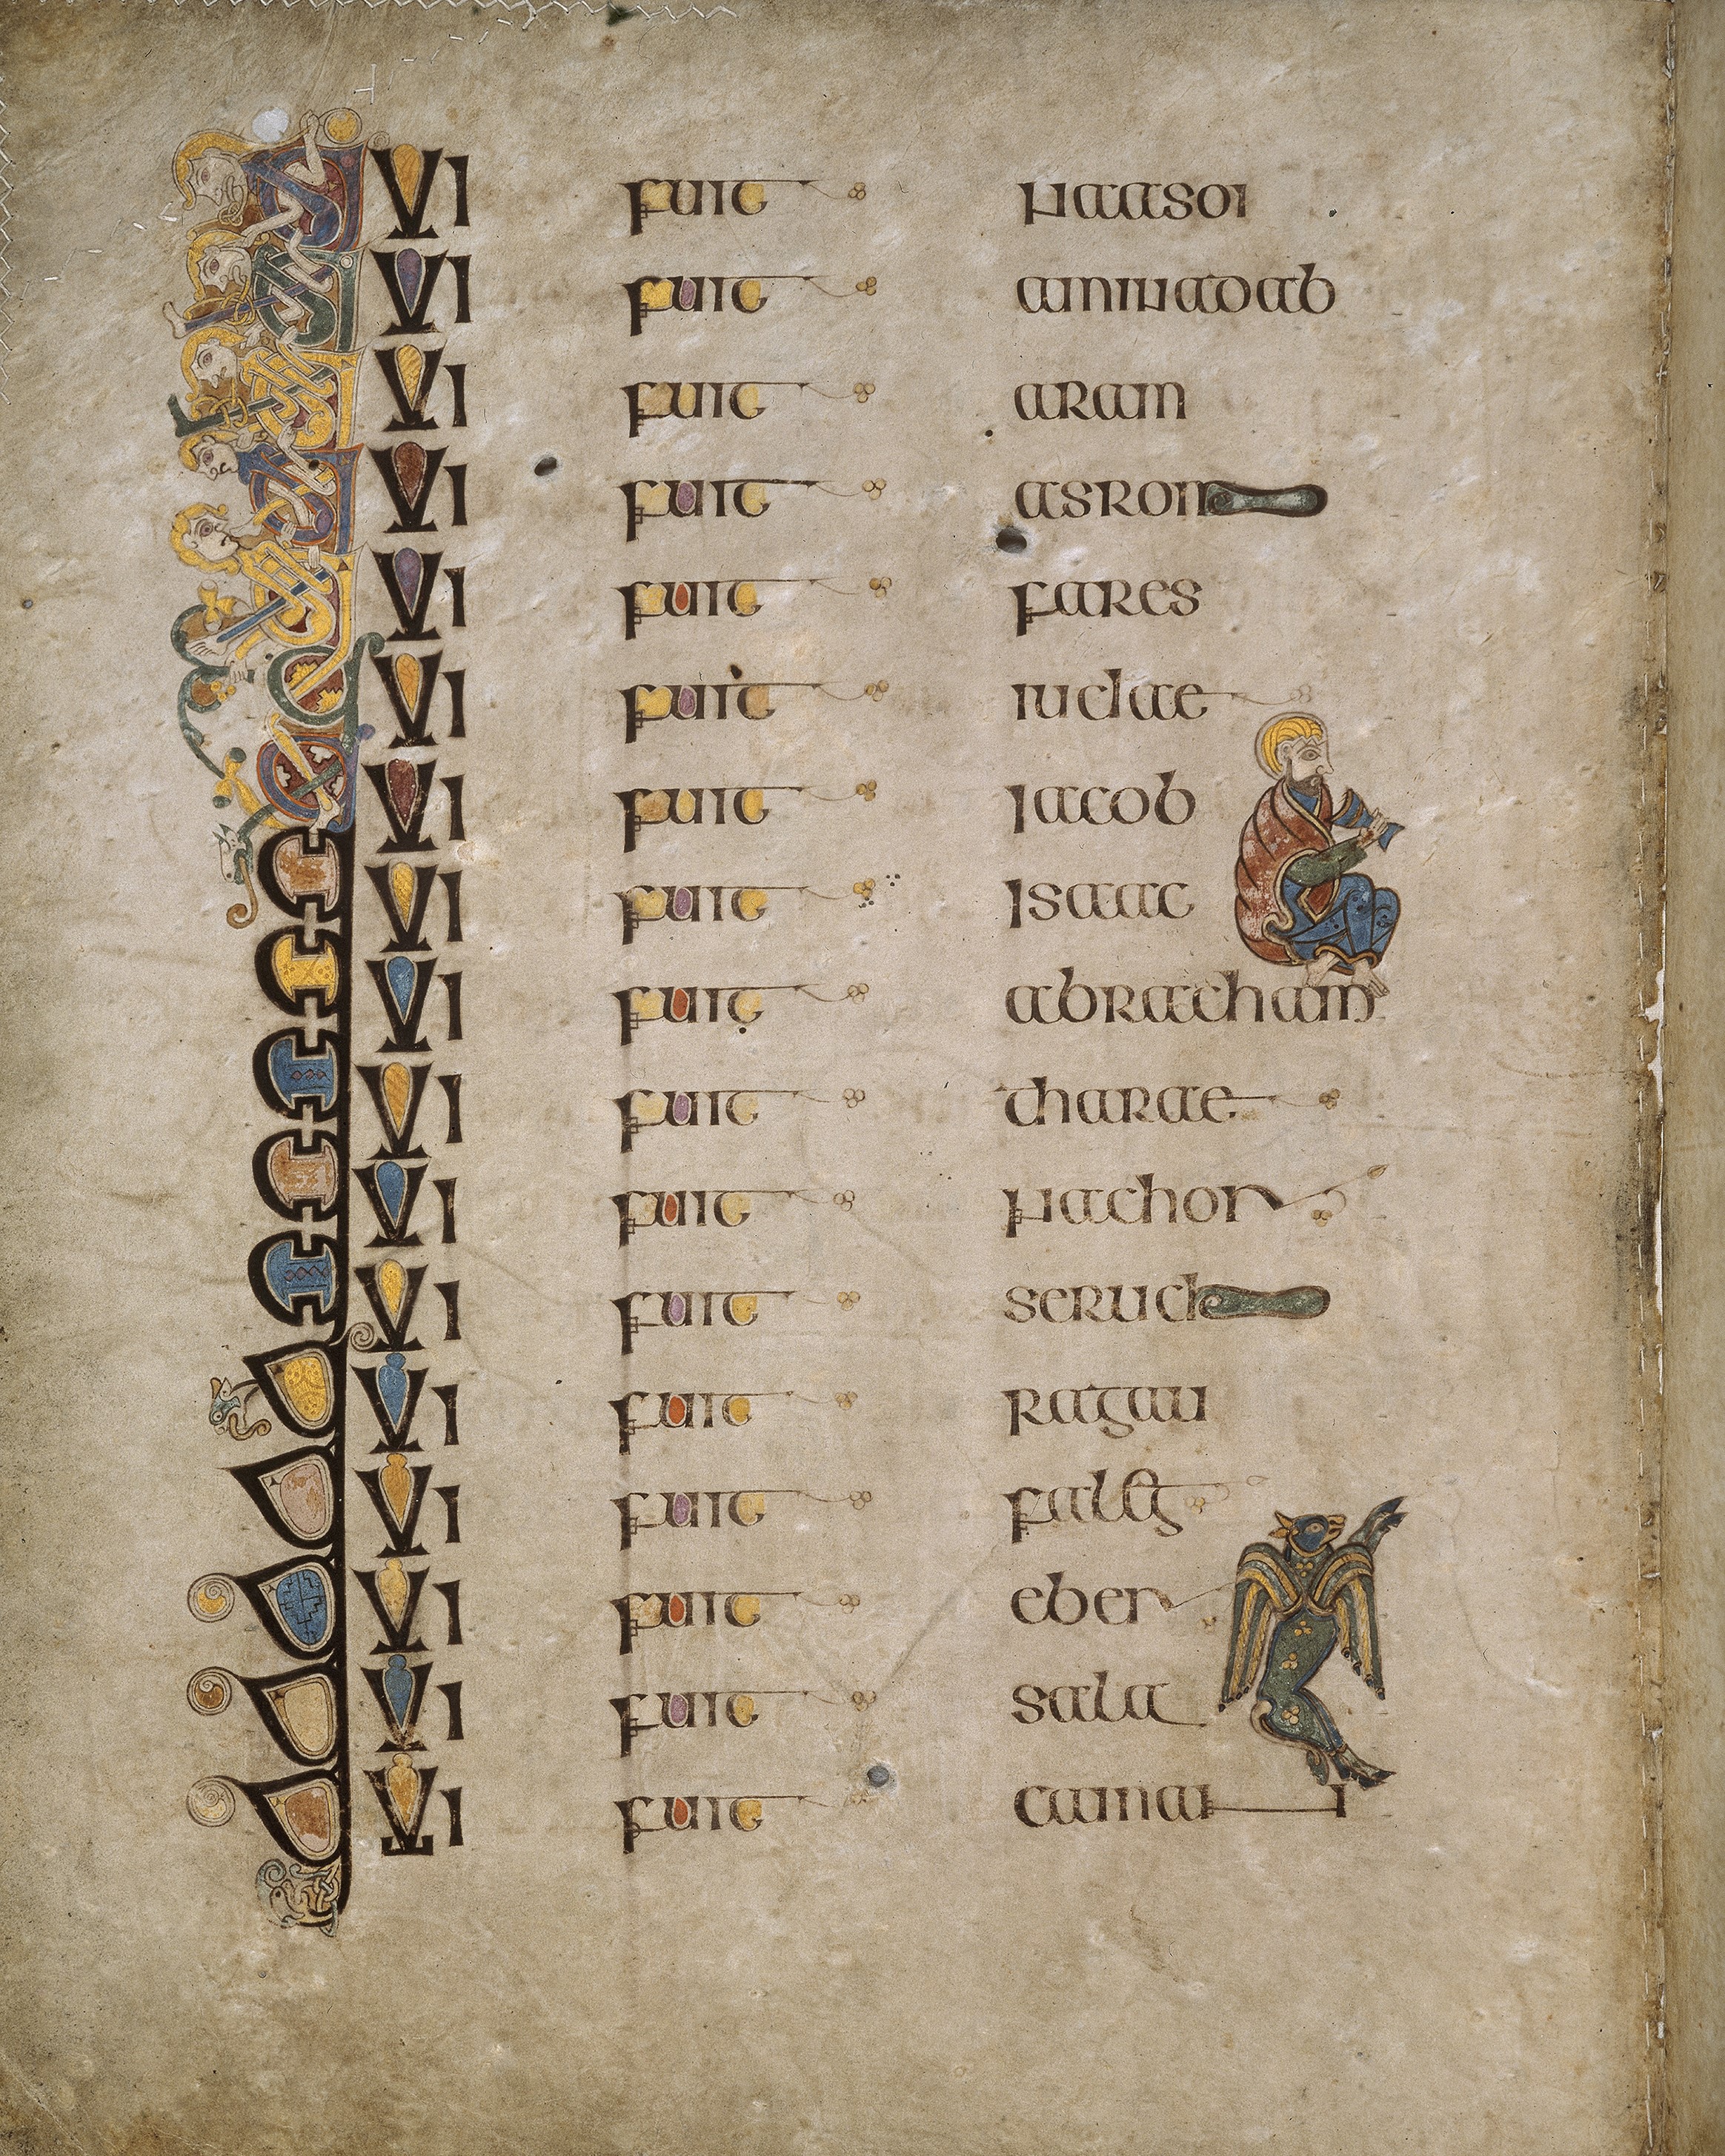 QVI fuit naason
QVI fuit aminadab
QVI fuit aram
QVI fuit asron
QVI fuit fares
QVI fuit iudae
QVI fuit iacob
QVI fuit isaac
QVI fuit abracham
QVI fuit tharae
QVI fuit nachor
QVI fuit seruch
QVI fuit ragau
QVI fuit faleg
QVI fuit eber
QVI fuit sala
QVI fuit cainan